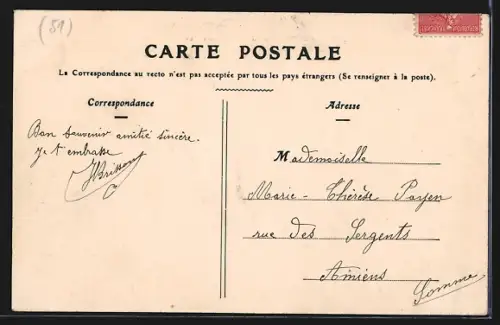 (51)
CARTE POSTALE
La Correspondance au recto n'est pas acceptée par tous les pays étrangers (Se renseigner à la poste).
Correspondance
Bon souvenir amitié sincère.
Je t'embrasse
Adresse
Mademoiselle
Marie-Thérèse Payen
rue des Sergents
Amiens
Somme